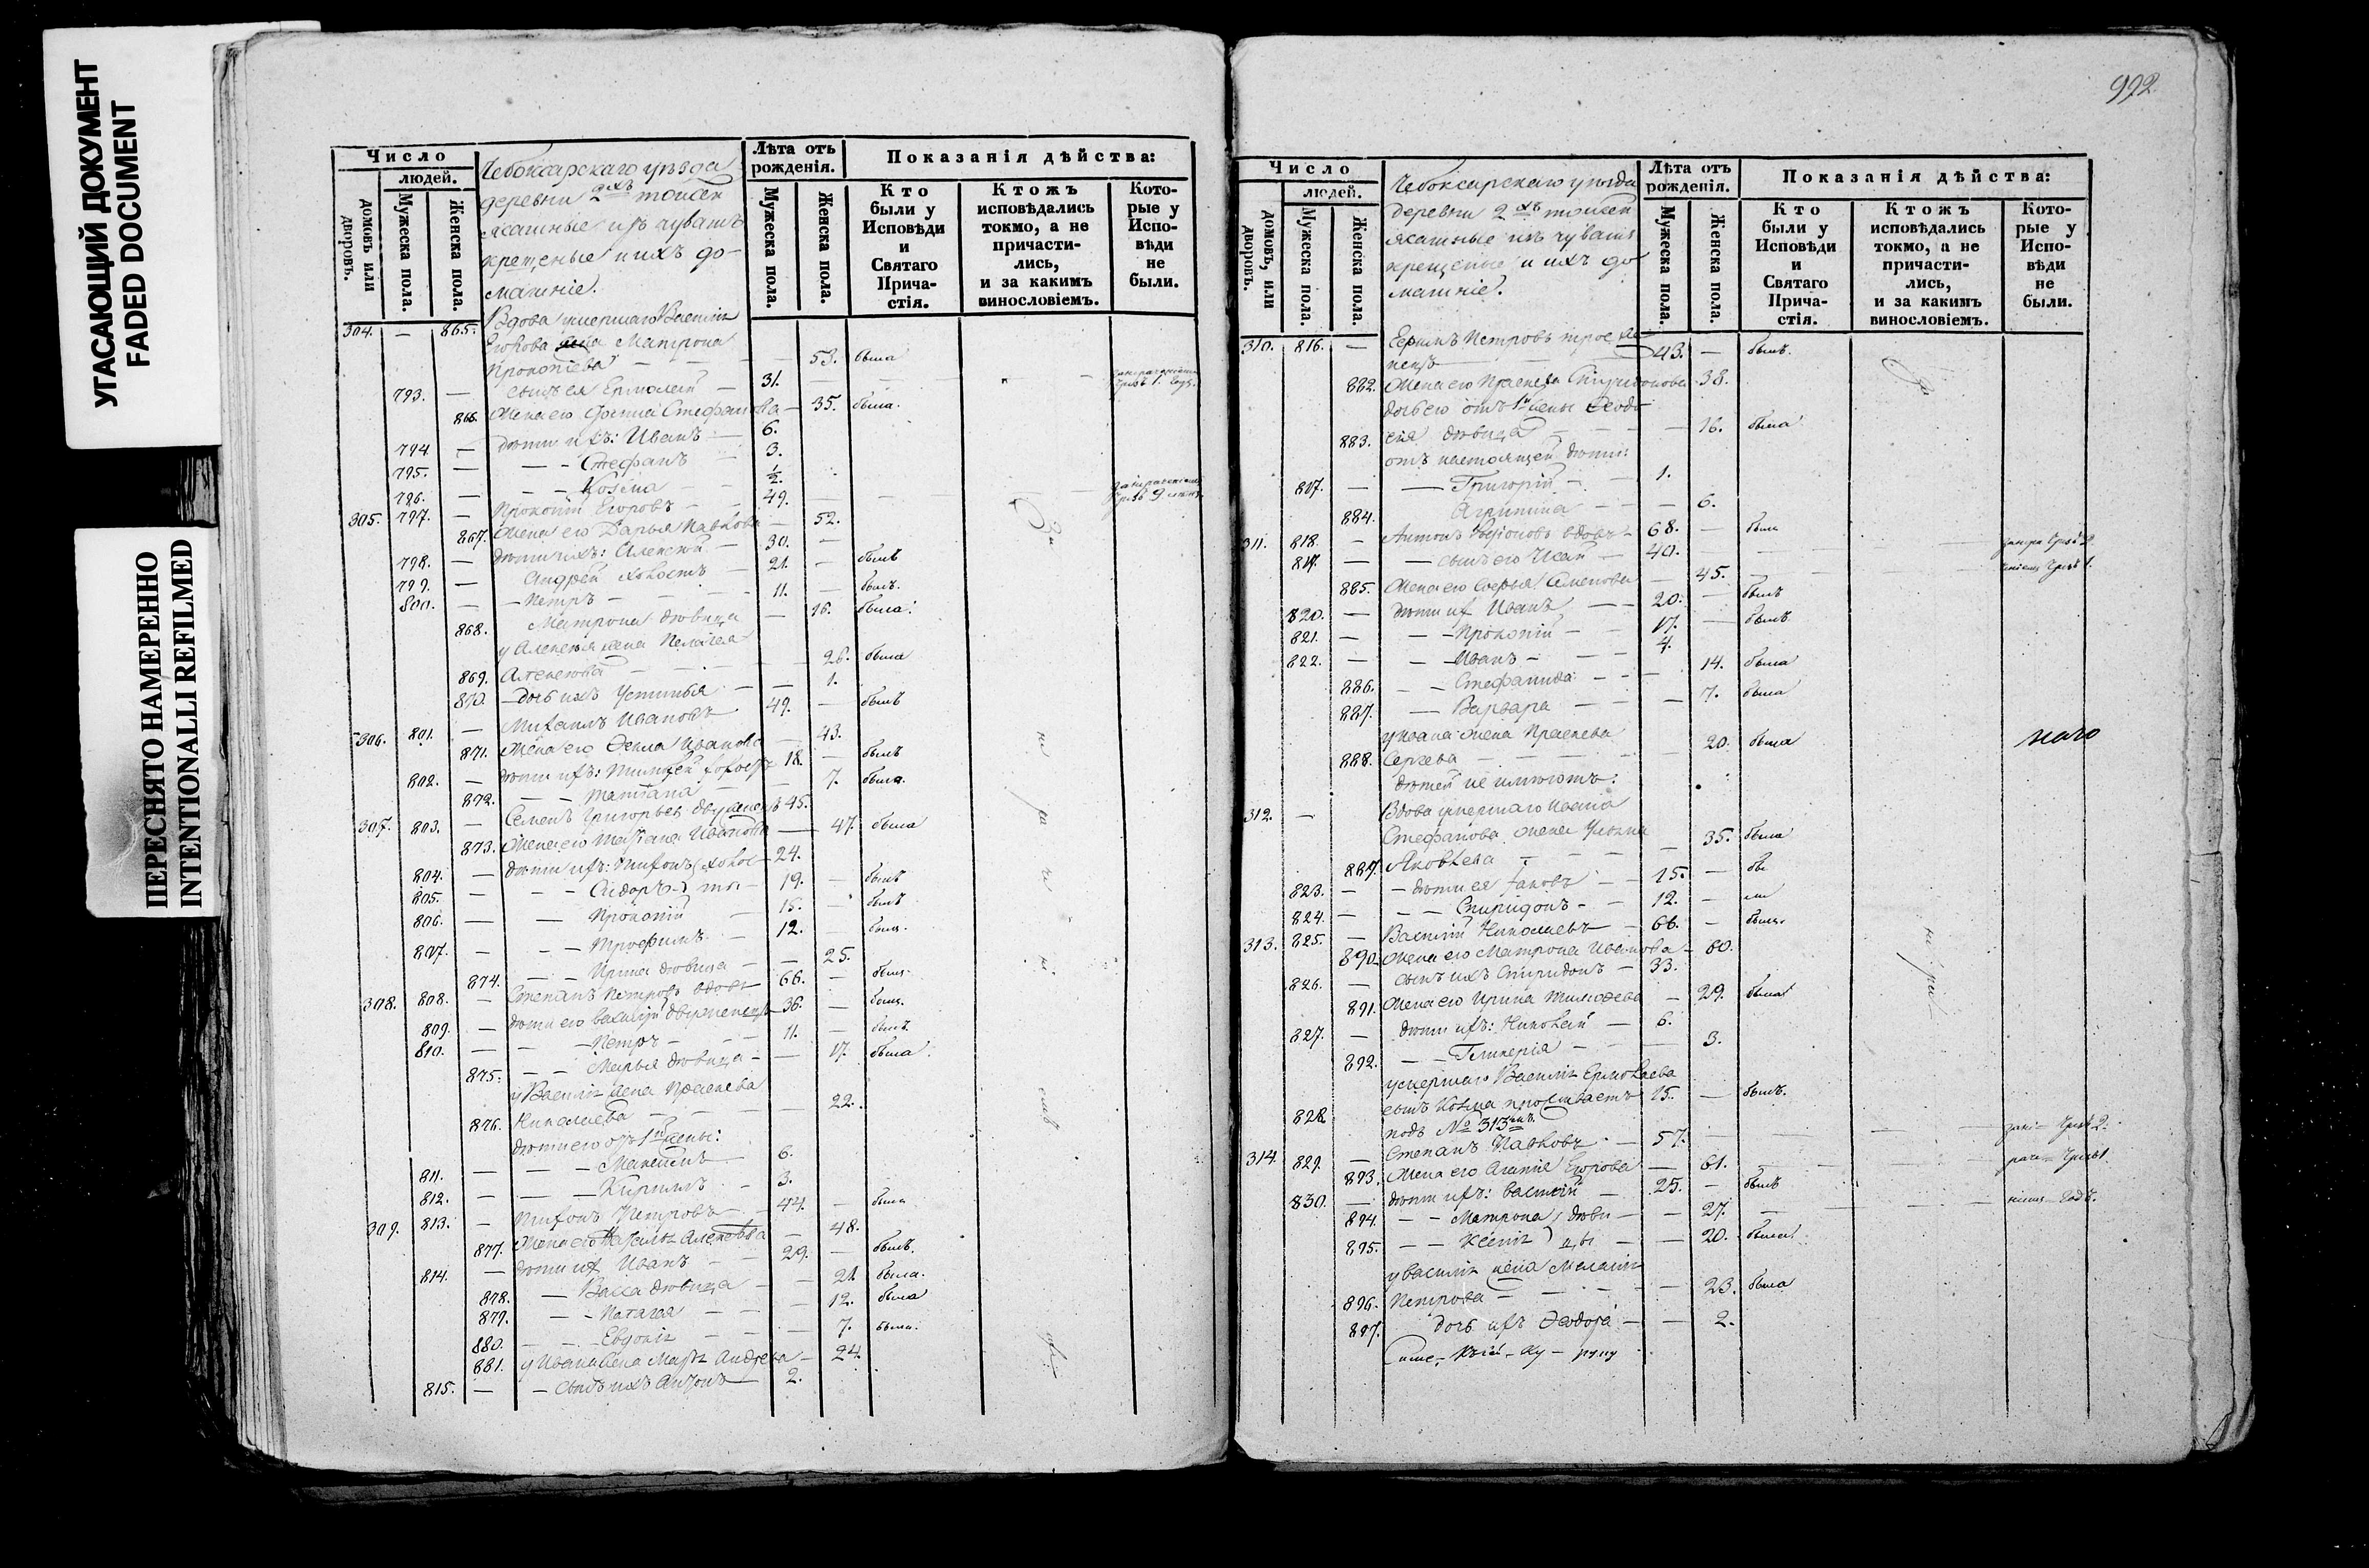 УГАСАЮЩИЙ ДОКУМЕНТ
FADED DOCUMENT
ПЕРЕСНЯТО НАМЕРЕННО
INTENTIONALLI REFILMED
Число
людей.
домовъ или дворовъ.
Мужеска пола.
Женска пола.
Чебоксарскаго уѣзда
деревни 2хъ тойсен
ясашные изъ чувашъ
крещеные и ихъ до-
машніе.
Лѣта отъ рожденія.
Мужеска пола.
Женска пола.
Показанія дѣйства:
Кто были у Исповѣди и Святаго Прича-стія.
Ктожъ исповѣдались токмо, а не причасти-лись, и за какимъ винословіемъ.
Кото-рые у Испо-вѣди не были.
304. — 865. Вдова умершаго Василія
Егорова жена Матрона
Прокопіева — — 53. была
793. — сынъ ея Ермолай — 31. —
866. Жена его Стефанова — 35. была.
794. — дѣти ихъ: Иванъ — 6.
795. — — Стефанъ 3.
796. — — Косма — ½.
305. 797. — Прокопій Егоровъ — 49.
867. Жена его Дарья Павлова — 52.
798. — дѣти ихъ: Алексѣй — 30. —
799. — Андрей холостъ — 21. — былъ
800. — — Петръ — 11. — былъ.
868. Матрона дѣвица — 16. была.
у Алексѣя жена Пелагея
869. Алексѣева — — 26. была
870. — дочь ихъ Устинья — 1.
306. 801. — Михаилъ Ивановъ 49. — былъ
871. Жена его Ѳекла Иванова — 43.
802. — дѣти ихъ: Тимоѳей холостъ 18. — былъ
872. — — Татіана — — 7. была.
307. 803. — Семенъ Григорьев двуженецъ 45.
873. Жена его Татіана Иванова — 47. была
804. — дѣти ихъ: Тихонъ холос- 24.
805. — — Сидоръ ты — 19. — былъ
806. — — Прокопій 15. — былъ
807. — — Трофимъ — 12.
874. — — Ирина дѣвица — 25.
308. 808. — Степанъ Петровъ вдовъ 66. —
809. — дѣти его Василій двуженецъ 36. —
810. — — Петръ — 11. — былъ
875. — — Марья дѣвица — — 17. была.
у Василія жена Праскева
876. Николаева — — 22.
дѣти его отъ 1й жены:
811. — — Максимъ 6.
812. — — Кириллъ — 3.
309. 813. — Тихонъ Петровъ — 44. —
877. Жена его Наталья Алексѣева — 48.
814. — дѣти их Иванъ — 29. — былъ.
878. — Васса дѣвица — 21. была.
879. — — Палагея — — 12. была
880. — — Евдокія — — 7. была.
881. у Ивана жена Марѳа Андрѣева — 24.
815. — — сынъ ихъ Антонъ — 2.
992.
Число
людей.
домовъ, или дворовъ.
Мужеска пола.
Женска пола.
Чебоксарскаго уѣзда
деревни 2хъ тойсен
ясашные изъ чувашъ
крещеные и ихъ до
машніе.
Лѣта отъ рожденія.
Мужеска пола.
Женска пола.
Показанія дѣйства:
Кто были у Исповѣди и Святаго Прича-стія.
Ктожъ исповѣдались токмо, а не причасти-лись, и за какимъ винословіемъ.
Кото-рые у Испо-вѣди не были.
310. 816. — Петровъ троеже
нецъ — 43. — былъ.
882. Жена его Праскева Спиридонова 38.
дочь его отъ 1й жены Ѳеодо
883. сія дѣвица — — 16. была
отъ настоящей дѣти:
817. — — Григорій — 1.
884. Агрипина — — 6.
311. 818. — Антонъ вдовъ — 68. —
819. — — сынъ его Исай — 40. —
885. Жена его Софья Семенова — 45. —
820. — дѣти их Иванъ — 20. — былъ
821. — — Прокопій — 17. — былъ
822. — — Иванъ — 4.
886. — — Стефанида — — 14. была
887. — — Варвара — — 7. была
у Ивана жена Праскева
888. Сергева — — 20. была
дѣтей не имѣютъ.
312. — Вдова умершаго Ивана
Стефанова жена Ульяна
889. Яковлева — — 35. была
823. — — дѣти ея Іаковъ — 15. —
824. — — Спиридонъ — 12. —
313. 825. — Василій Николаевъ — 66. —
890. Жена его Матрона Иванова — 60.
826. — сынъ ихъ Спиридонъ — 33.
891. Жена его Ирина Тимоѳеева — 29. была
827. — дѣти ихъ: Николай — 6.
892. — — Гликерія — — 3.
умершаго Василія Ермолаева
828. сынъ Козма проживаетъ 15. — былъ.
подъ № 313мъ.
314. 829. — Степанъ Павловъ — 57. —
893. Жена его Агапія Егорова — 61. —
830. — дѣти ихъ: Василій — 25. — былъ
894. — — Матрона дѣви — — 27. —
895. — — Ксенія цы — — 20. была.
у Василія жена Меланія
896. Петрова — — 23. была
897. дочь ихъ Ѳеодора — — 2.